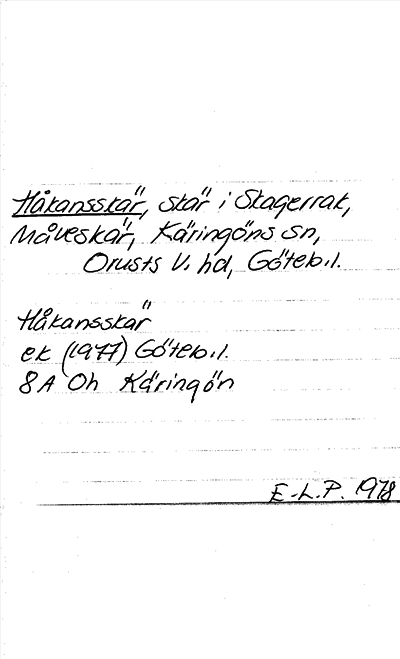 Håkansskär, skär i Skagerrak,
Måveskär, Käringöns sn,
Orusts V. hd, Göteb.l.
Håkansskär
ek (1977) Göteb.l.
8A Oh Käringön
E-L.P. 1978